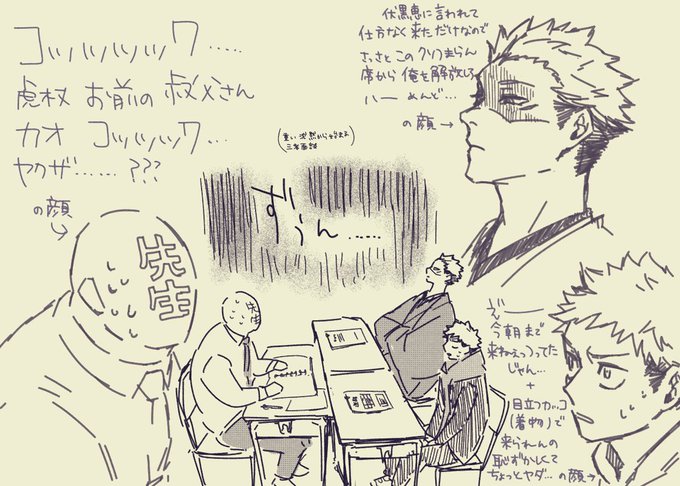 コッッッッッワ……
虎杖 お前の 叔父さん
カオ コッッッッワ…
ヤクザ……???
の顔→
伏黒恵に言われて
仕方なく来ただけなので
さっさと この クソつまらん
席から 俺を解放しろ
ハー めんど…
の顔→
三者面談
ずうん……
先生
先生
今朝まで
来ねぇっつってた
じゃん…
+
目立つカッコ
(着物)で
来られんの
恥ずかしくて
ちょっとヤダ…の顔→